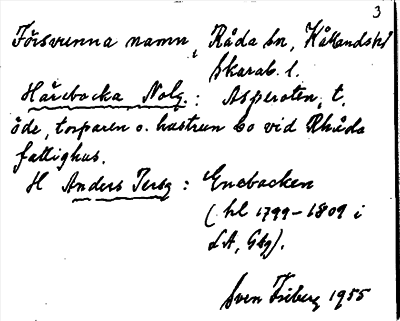 3
Försvunna namn, Råda sn, Kållands hd
Skarab. l.
Hårebacka Nolg.: Asperoten, t.
öde, torparen o. hustrun bo vid Råda
fattighus.
H Anders Persg: Enebacken
(hl 1799-1809 i
LA, Gbg).
Sven Friberg 1955